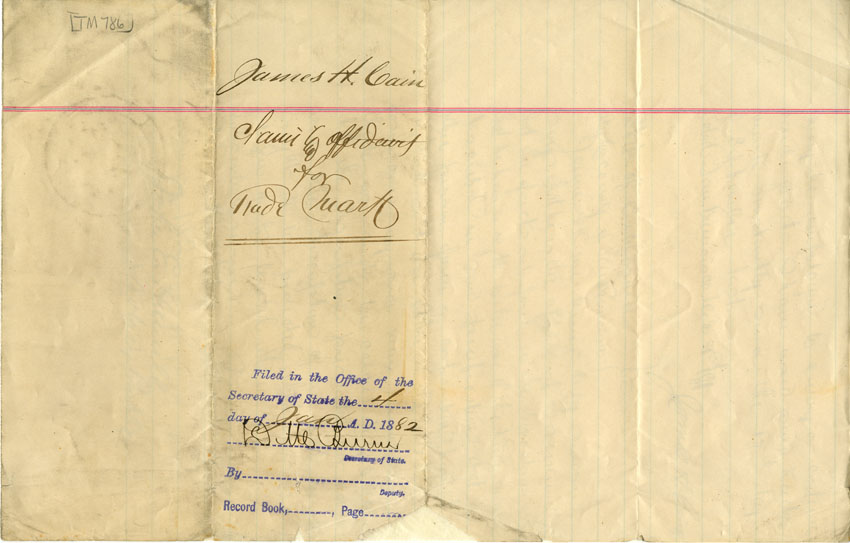 [TM 786]
James H. Cain
Claim & affidavit
for
Trade Mark
Filed in the Office of the
Secretary of State the 4
day of A. D. 1882
Secretary of State.
By
Deputy.
Record Book, , Page